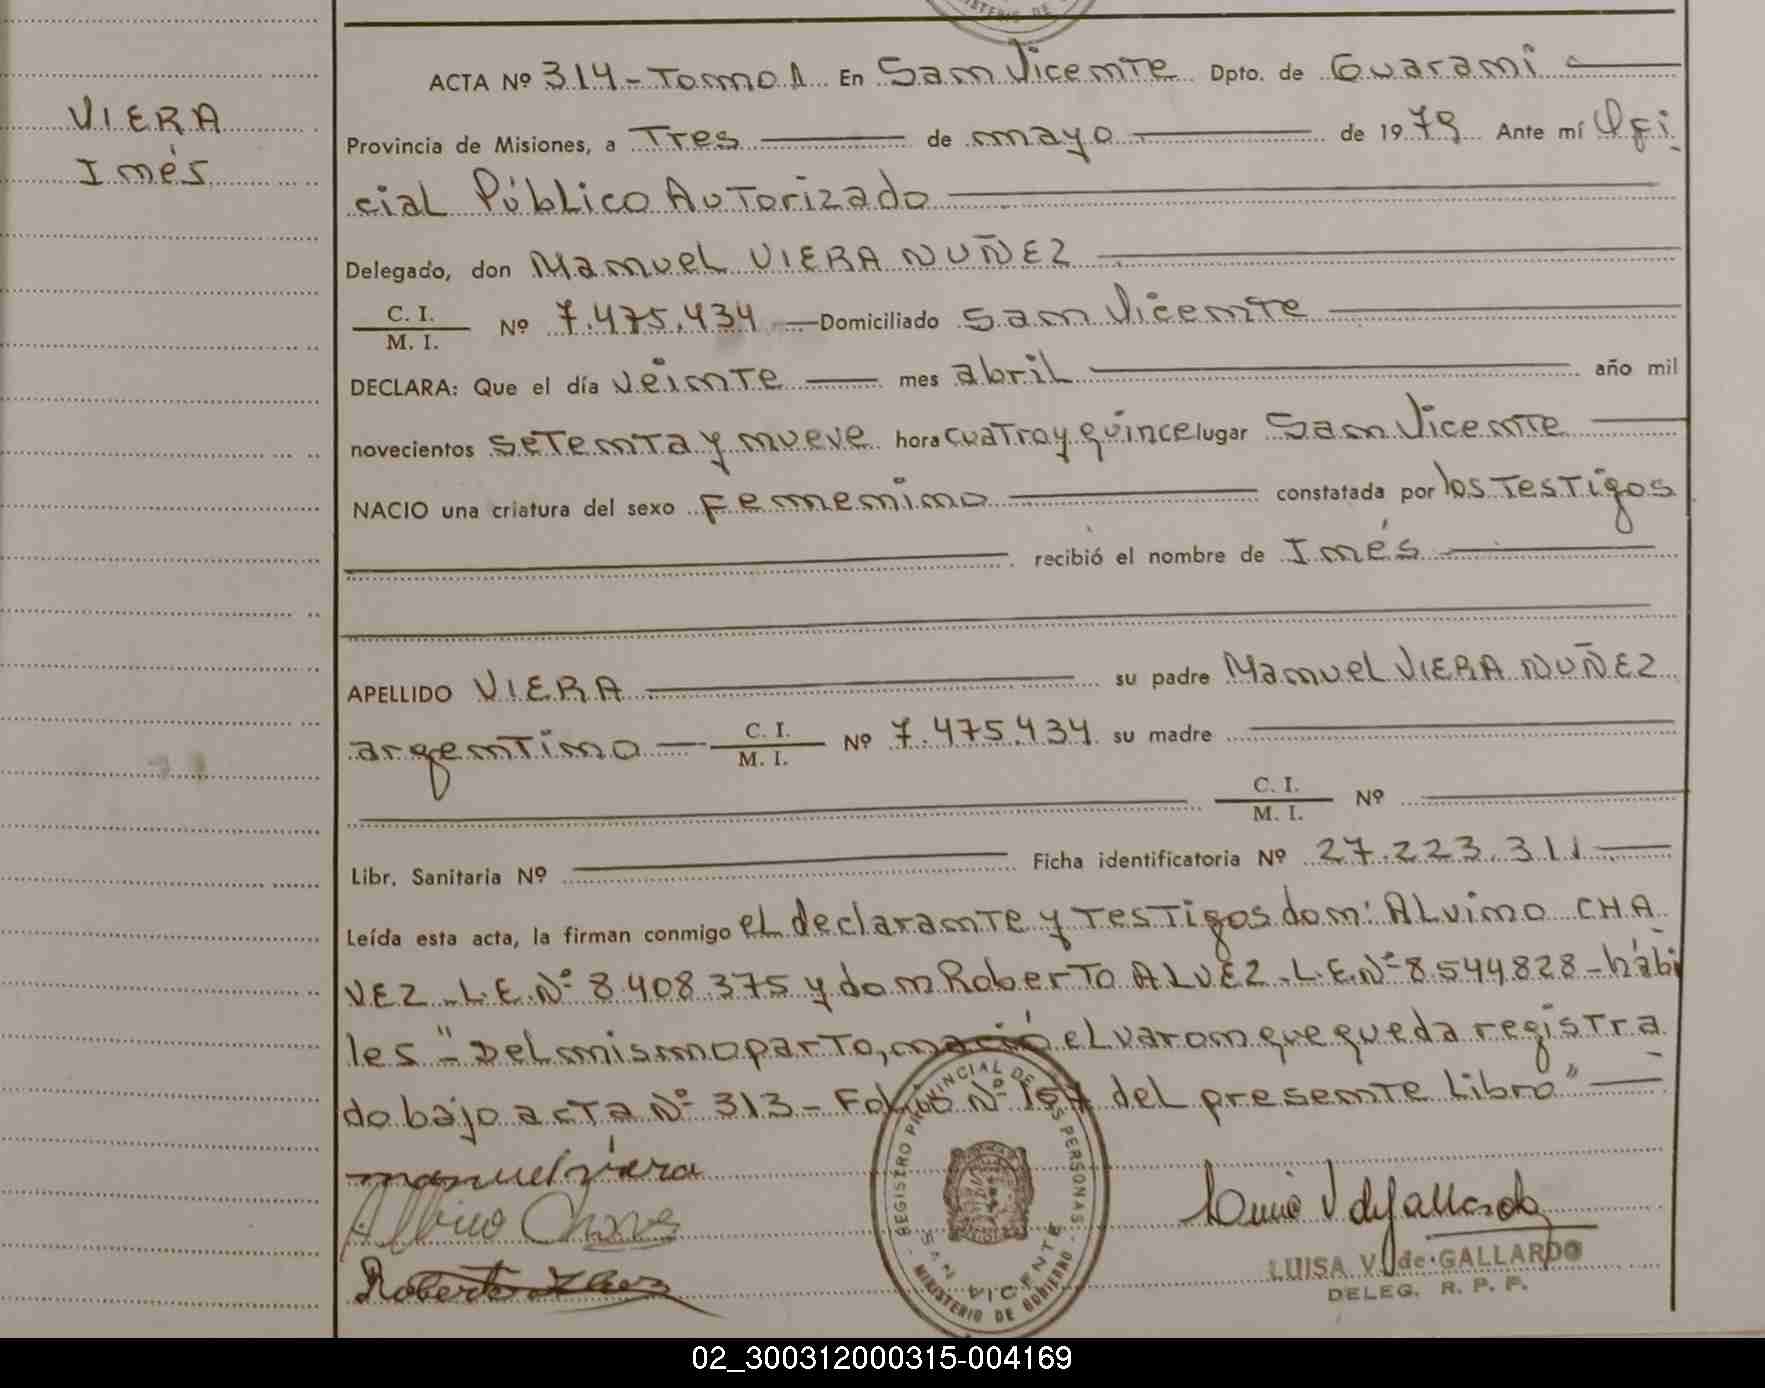 MINISTERIO DE
VIERA
Inés
ACTA Nº 314 - Tomo 1 En San Vicente Dpto. de Guaraní
Provincia de Misiones, a Tres de mayo de 1979 Ante mí Ofi
cial Público Autorizado
Delegado, don Manuel VIERA NUÑEZ
C. I.
M. I. Nº 7.475.434 Domiciliado San Vicente
DECLARA: Que el día veinte mes abril año mil
novecientos setenta y nueve hora cuatro y quince lugar San Vicente
NACIO una criatura del sexo Femenino constatada por los Testigos
recibió el nombre de Inés
APELLIDO VIERA su padre Manuel VIERA NUÑEZ
argentino C. I. M. I. Nº 7.475.434 su madre
C. I. M. I. Nº
Libr. Sanitaria Nº Ficha identificatoria Nº 27.223.311
Leída esta acta, la firman conmigo el declarante y Testigos don: ALvino CHA
VEZ - L.E.Nº 8.408.375 y don Roberto ALVEZ - L.E.Nº 8.544.828 - hábi
les "- Del mismo parto, nació el varon que queda registra
do bajo acta Nº 313 - Folio Nº 157 del presente Libro"
manuel viera
Albino Chaves
Roberto
LUISA V. de GALLARDO
DELEG. R. P. P.
REGISTRO PROVINCIAL DE LAS PERSONAS
SAN VICENTE
MINISTERIO DE GOBIERNO
02_300312000315-004169